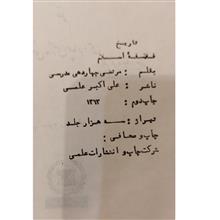 تاریخ
فلسفهٔ اسلام
بقلم : مرتضی چهاردهی مدرسی
ناشر : علی اکبر علمی
چاپ دوم : ۱۳۶۳
تیراژ : سه هزار جلد
چاپ و صحافی :
شرکت چاپ و انتشارات علمی